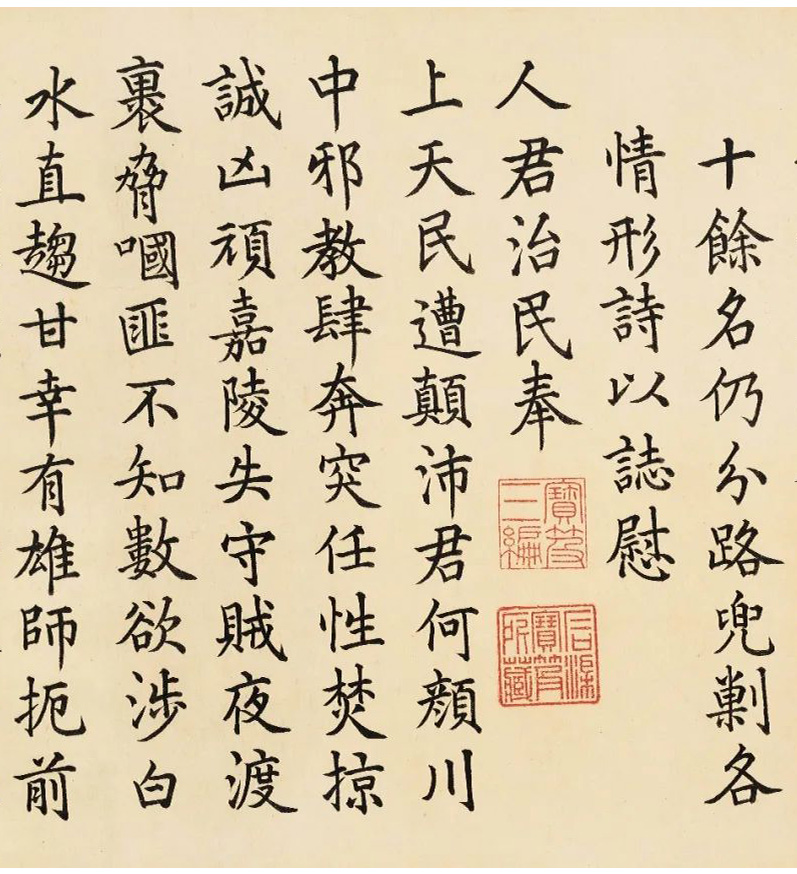 十餘名仍分路兜剿各
情形詩以誌慰
人君治民奉
寶笈
三編
石渠
寶笈
所藏
上天民遭顛沛君何顏川
中邪教肆奔突任性焚掠
誠凶頑嘉陵失守賊夜渡
裹脅嘓匪不知數欲涉白
水直趨甘幸有雄師扼前